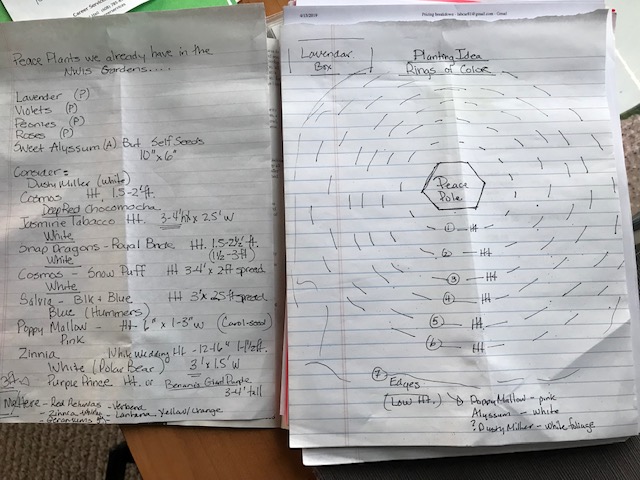 Career Services
Peace Plants we already have in the
NWIS Gardens.....
Lavender (P)
Violets (P)
Peonies (P)
Roses (P)
Sweet Alyssum (A) But Self Seeds
10" x 6"
Consider:
Dusty Miller (white)
Cosmos Ht. 1.5-2'ft.
Deep Red Chocomocha
Jasmine Tobacco Ht. 3-4' x 2.5' W
White
Snap Dragons - Royal Bride Ht. 1.5-2½' ft.
White (1½-3ft)
Cosmos - Snow Puff Ht 3-4' x 2ft spread
White
Salvia - Blk + Blue Ht 3' x 2.5 ft spread
Blue (Hummers)
Poppy Mallow - Ht 6" x 1-3" W (Carol-seed)
Pink
Zinnia White Wedding Ht - 12-16" 1-1½ft.
White (Polar Bear) 3' x 1.5' W
Purple Prince Ht. or Benary's Giant Purple
3-4' tall
- Red Petunias - Verbena
- Zinnia - Lantana Yellow/Orange
- Geraniums
4/15/2019
Pricing breakdown - Gmail
Lavendar
Box
Planting Idea
Rings of Color
Peace
Pole
① - Ht.
② - Ht.
③ - Ht.
④ - Ht.
⑤ - Ht.
⑥ - Ht.
⑦ Edges
(Low Ht.) Poppy Mallow - pink
Alyssum - white
? Dusty Miller - White foliage